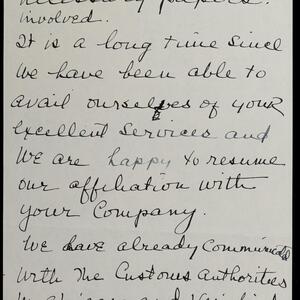 necessary papers.
involved.
It is a long time since
we have been able to
avail ourselves of your
excellent services and
we are happy to resume
our affiliation with
your Company.
We have already communicated
with the Customs Authorities
in